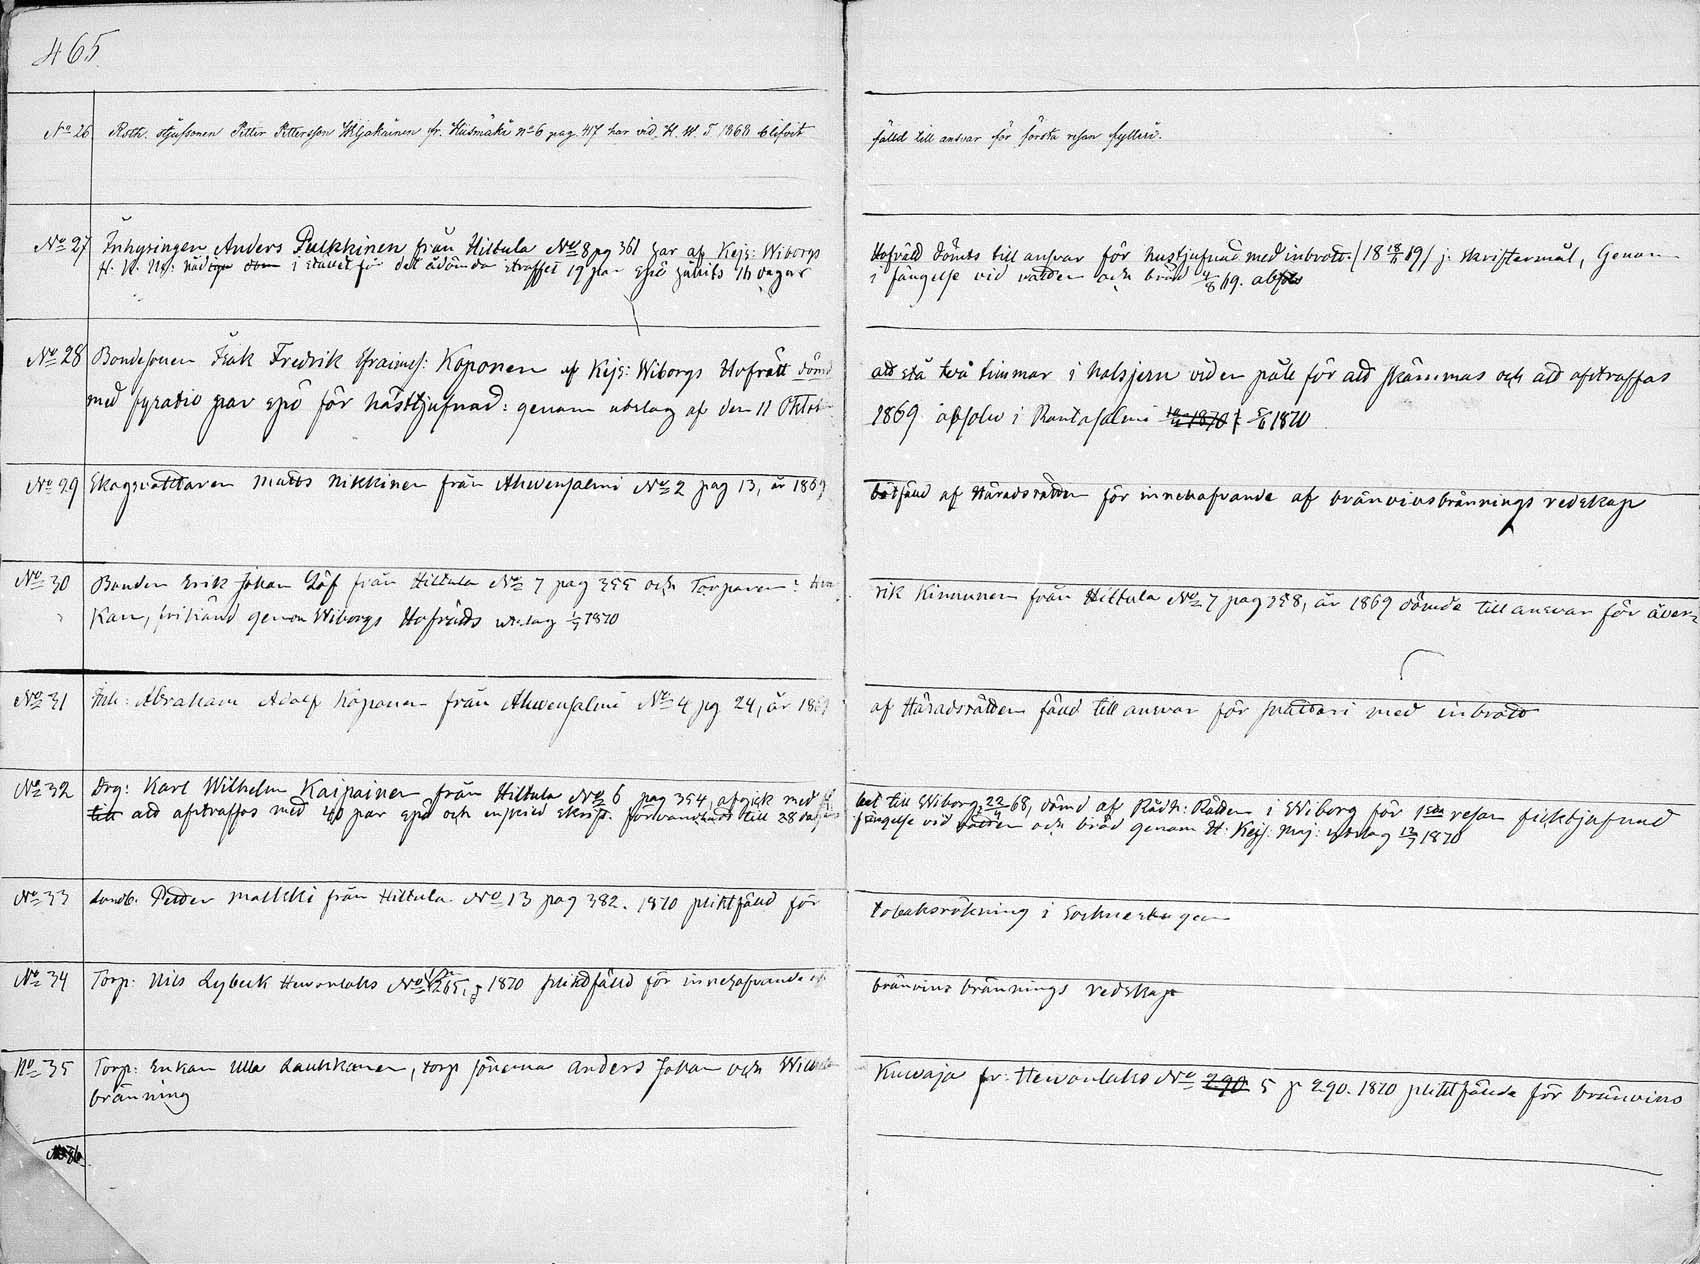 465
No 26 Roth. styfsonen Petter Pettersson Iljakainen fr. Kiismäki no 6 pag. 417 har vid H. W. T 1868 blifvit fälld till ansvar för första resan fylleri.
No 27 Inhysingen Anders Pulkkinen från Hiltula No 8 pg 361 har af Kejs: Wiborgs Hofrätt dömts till ansvar för hustjufnad med inbrott. (18 18/ 69) j. skriftermål, Genom
i stället för det ådömda straffet 19 par spö hållits 14 dagar i fängelse vid vatten och bröd 4/8 69. absolv
No 28 Bondesonen Isak Fredrik Efraimss: Koponen af Kejs: Wiborgs Hofrätt dömd att stå två timmar i halsjern vid en påle för att skämmas och att afstraffas
med fyratio par spö för hästtjufnad: genom utslag af den 11 Oktob 1869 absolv i Rantasalmi 5/6 1870
No 29 Skogsvaktaren Matts Nikkinen från Ahwensalmi No 2 pag 13, år 1869 botfälld af Häradsrätten för innehafvande af bränvinsbrännings redskap
No 30 Bonden Erik Johan Löf från Hiltula No 7 pag 355 och Torparen: Hen rik Kinnunen från Hiltula No 7 pag 358, år 1869 dömde till ansvar för åver=
kan, frikänd genom Wiborgs Hofrätts utslag 1/7 1870
No 31 Inh: Abraham Adolf Koponen från Ahwensalmi No 4 pg 24, år 1869 af Häradsrätten fälld till ansvar för snatteri med inbrott
No 32 Drg: Karl Wilhelm Kaipainen från Hiltula No 6 pag 354, afgick med bet till Wiborg 22/ 68, dömd af Rådh: Rätten i Wiborg för 1sta resan ficktjufnad
till att afstraffas med 40 par spö och enskild skrift. förvandladt till 28 dagars fängelse vid vatten och bröd genom H: Kejs: Maj: utslag 13/7 1870
No 33 Landb. Petter Malkki från Hiltula No 13 pag 382. 1870 pliktfälld för tobaksrökning i Sockne stugan
No 34 Torp: Nils Lybeck Hewonlaks No 265, 1870 pliktfälld för innehafvande af bränvins brännings redskap
No 35 Torp: Enkan Ulla Laukkanen, torp sönerna Anders Johan och Wilhelm Kuwaja fr: Hewonlaks No 290 5 p 290. 1870 pliktfälde för bränvins
bränning
No 36